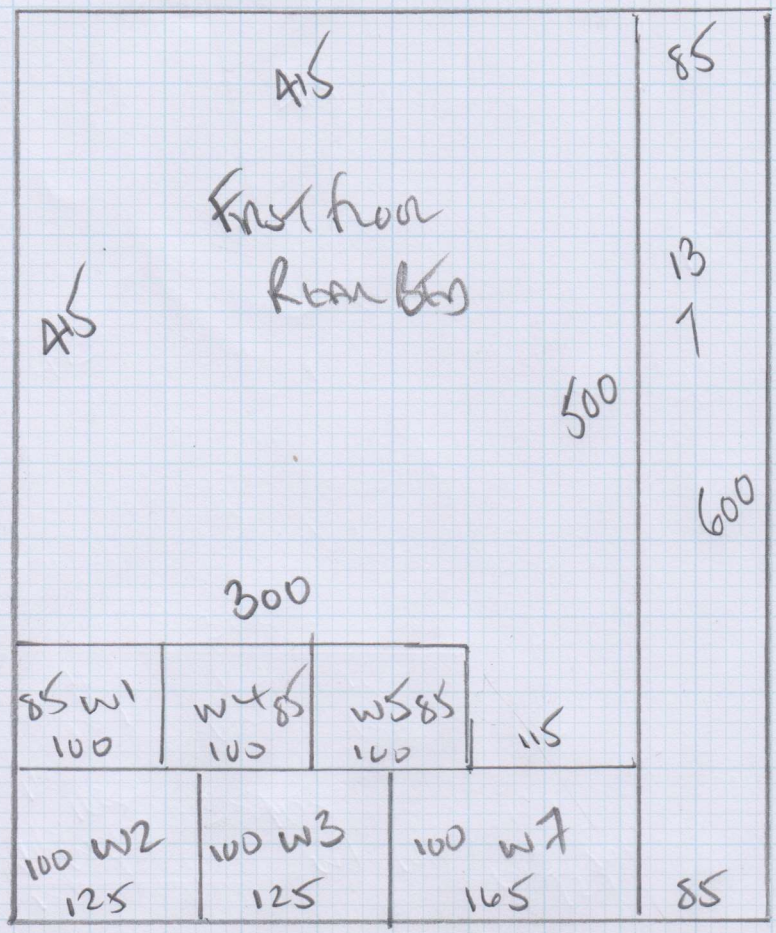 415
85
First floor
Rear Bed
13
1
415
500
600
300
85 W1
100
W4 85
100
W5 85
100
115
100 W2
125
100 W3
125
100 W7
165
85